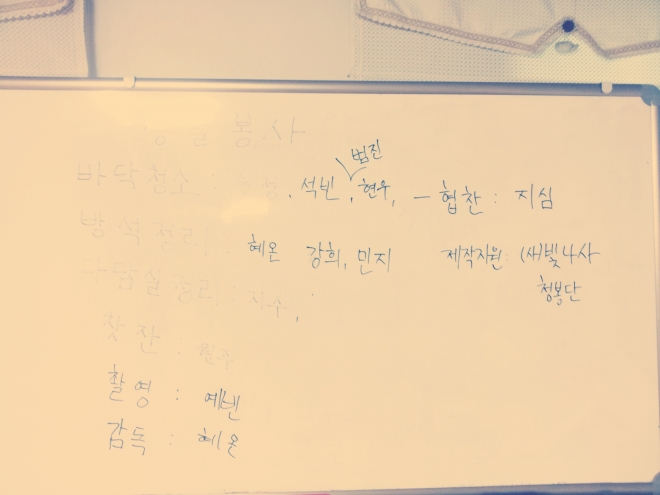 봉사
범진
바닥청소 : 석빈, 현우, - 협찬 : 지심
방석정리 : 혜온 강희, 민지 제작지원 : (새빛나사
청봉단
정리 : 지수,
찻잔 :
촬영 : 예넨
감독 : 혜온